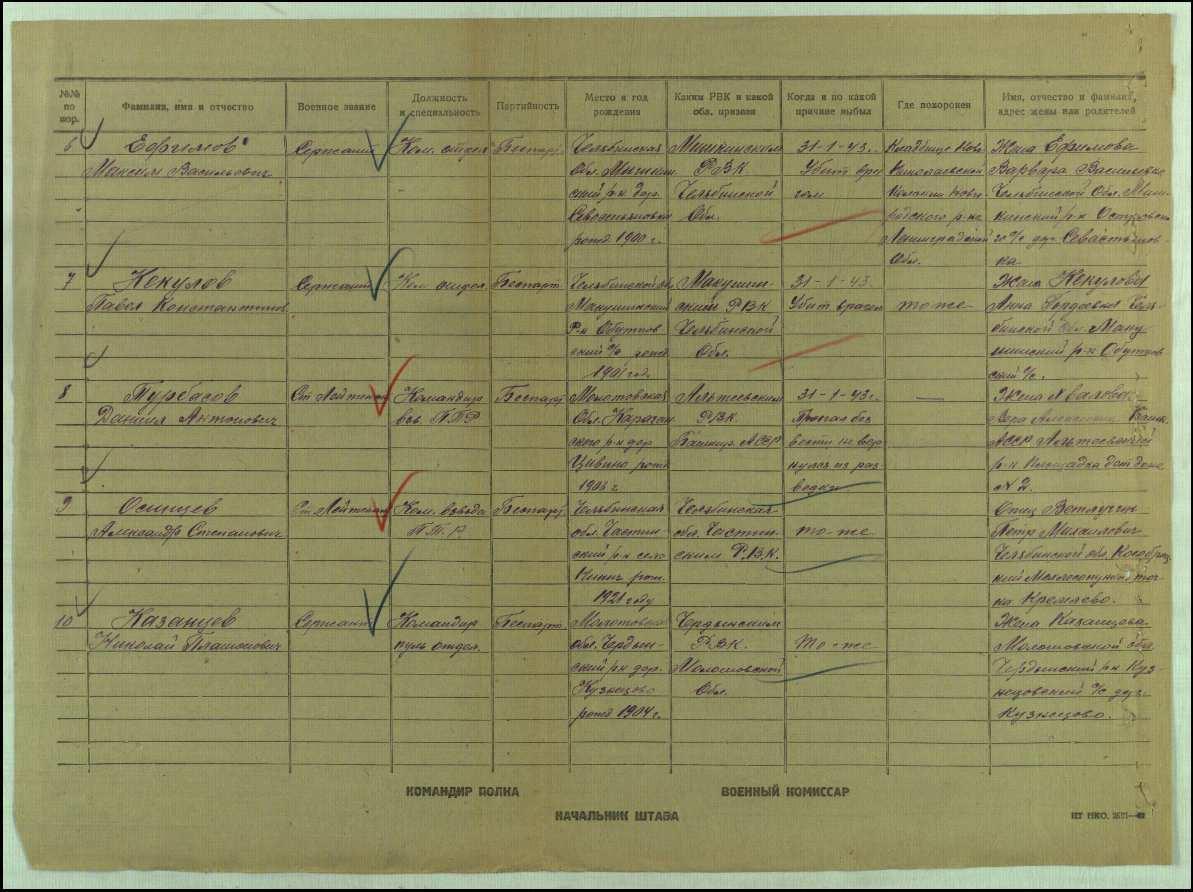 №№ по пор.
Фамилия, имя и отчество
Военное звание
Должность и специальность
Партийность
Место и год рождения
Каким РВК и какой обл. призван
Когда и по какой причине выбыл
Где похоронен
Имя, отчество и фамилия, адрес жены или родителей
6
Ефимов
Максим Васильевич
Сержант
Ком. отдел
Беспарт.
Челябинская
Обл. Мишкин
ский р-н дер.
рожд 1900 г.
Мишкинским
РВК
Челябинской
Обл.
31-1-43 г.
Убит вра
гом
Кладбище Ново
Николаевской
Обл.
Жена Ефимова
Варвара Васильевна
Челябинской Обл. Миш
кинский р-н Островск
7
Некулов
Павел Константинов
Сержант
Ком. отдел.
Беспарт.
Челябинской обл
Макушинский
Р-н Обутков
ский с/с рожд
1901 год.
Макушин-
ский РВК
Челябинской
Обл.
31-1-43.
Убит врагом
то-же
Жена Некулова
Анна
бинской Обл. Маку
шинский р-н Обутков
ский с/с.
8
Турбасов
Даниил Антонович
Ст Лейтенан
Командир
взв. ПТР
Беспарт
Молотовская
Обл. Карагай
ского р-н дер
Цивино рожд
1906 г
РВК.
Башкир. АССР
31-1-43 г.
Пропал без
вести не вер
нулся из раз
ведки
—
Жена
Вера
АССР
р-н Площадка
№ 2.
9
Осинцев
Александр Степанович
Ст Лейтенан
Ком. Взвода
П.Т.Р
Беспарт
Челябинская
ский р-н село
рож.
1921 году
Челябинская
ским Р.В.К.
то-же
Отец Ветлугин
Петр Михайлович
Челябинской обл.
на Кремлево.
10
Казанцев
Николай Платонович
Сержант
Командир
пуль отдел.
Беспарт.
Молотовска
обл. Чердын-
ский р-н дер.
Кузнецово
рожд 1904 г.
Чердынским
РВК.
Молотовской
Обл.
То-же
Жена Казанцева
Молотовской обл
Чердынский р-н Куз
нецовский с/с дер.
Кузнецово.
КОМАНДИР ПОЛКА
ВОЕННЫЙ КОМИССАР
НАЧАЛЬНИК ШТАБА